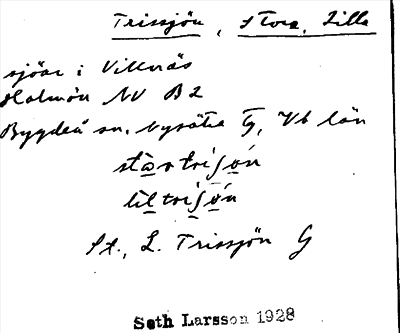 Trissjön, Stora, Lilla
sjöar i Villnäs
Holmön NV B2
Bygdeå sn. bysätra G, Vb län
St., L. Trissjön G
Seth Larsson 1928